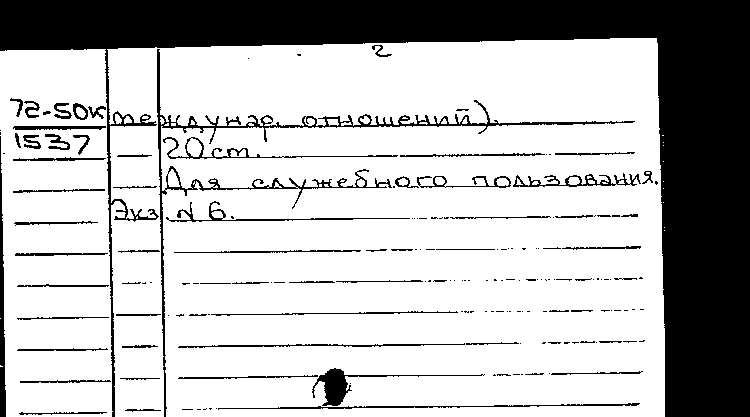 2
72-50к междунар. отношений).
1537 20 ст.
Для служебного пользования.
Экз. N 6.